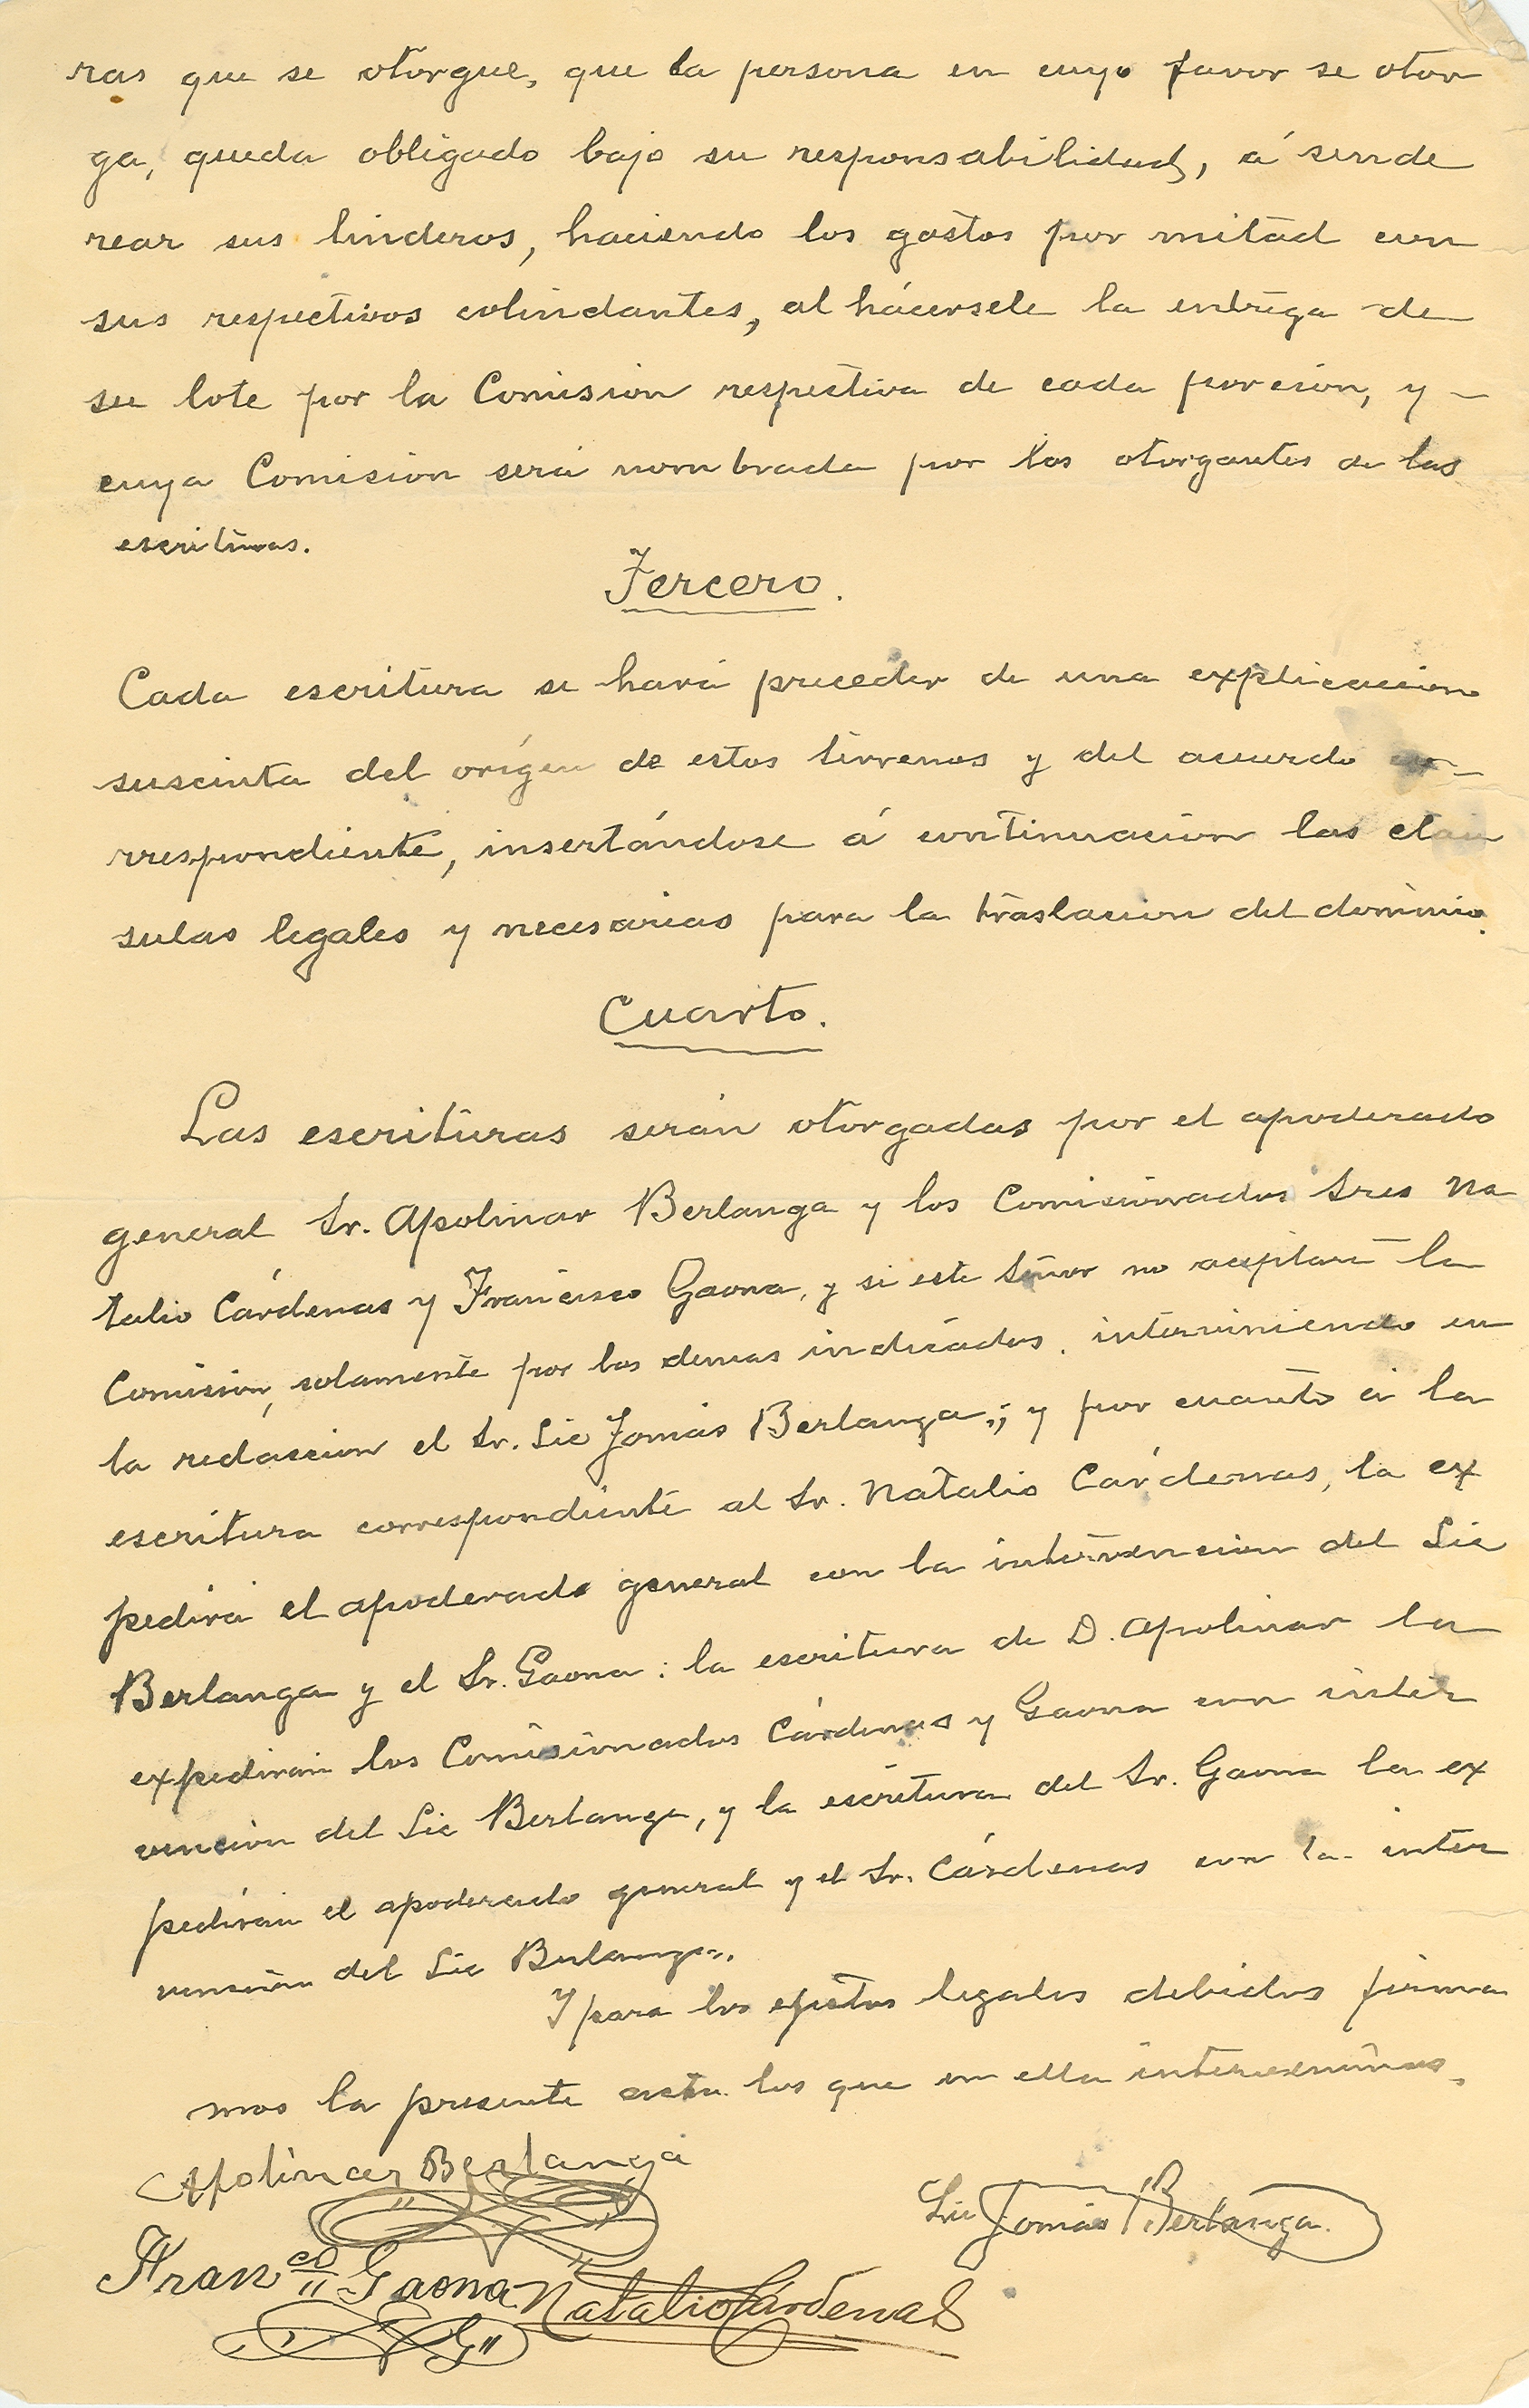 ras que se otorgue, que la persona en cuyo favor se otor
ga, queda obligado bajo su responsabilidad, á sende
rear sus linderos, haciendo los gastos por mitad con
sus respectivos colindantes, al hácersele la entrega de
su lote por la Comision respectiva de cada porcion, y –
cuya Comision será nombrada por los otorgantes de las
escrituras.
Tercero.
Cada escritura se hará preceder de una explicacion
suscinta del orígen de estos terrenos y del acuerdo co–
rrespondiente, insertándose á continuacion las clau
sulas legales y necesarias para la traslacion del dominio.
Cuarto.
Las escrituras serán otorgadas por el apoderado
general Sr. Apolinar Berlanga y los Comisionados Sres Na
talio Cárdenas y Francisco Gaona, y si este Señor no aceptare la
Comision, solamente por los demas indicados, interviniendo en
la redaccion el Sr. Lic Tomás Berlanga; y por cuanto á la
escritura correspondiente al Sr. Natalio Cárdenas, la ex
pedirá el apoderado general con la intervencion del Lic
Berlanga y el Sr. Gaona: la escritura de D. Apolinar la
expediran los Comisionados Cárdenas y Gaona con inter
vencion del Lic Berlanga, y la escritura del Sr. Gaona la ex
pedirán el apoderado general y el Sr. Cárdenas con la inter
vencion del Lic Berlanga.
Y para los efectos legales debidos firma
mos la presente acta los que en ella intervenimos.
Apolinar Berlanga
Lic Tomás Berlanga.
Franco Gaona
Natalio Cárdenas
G